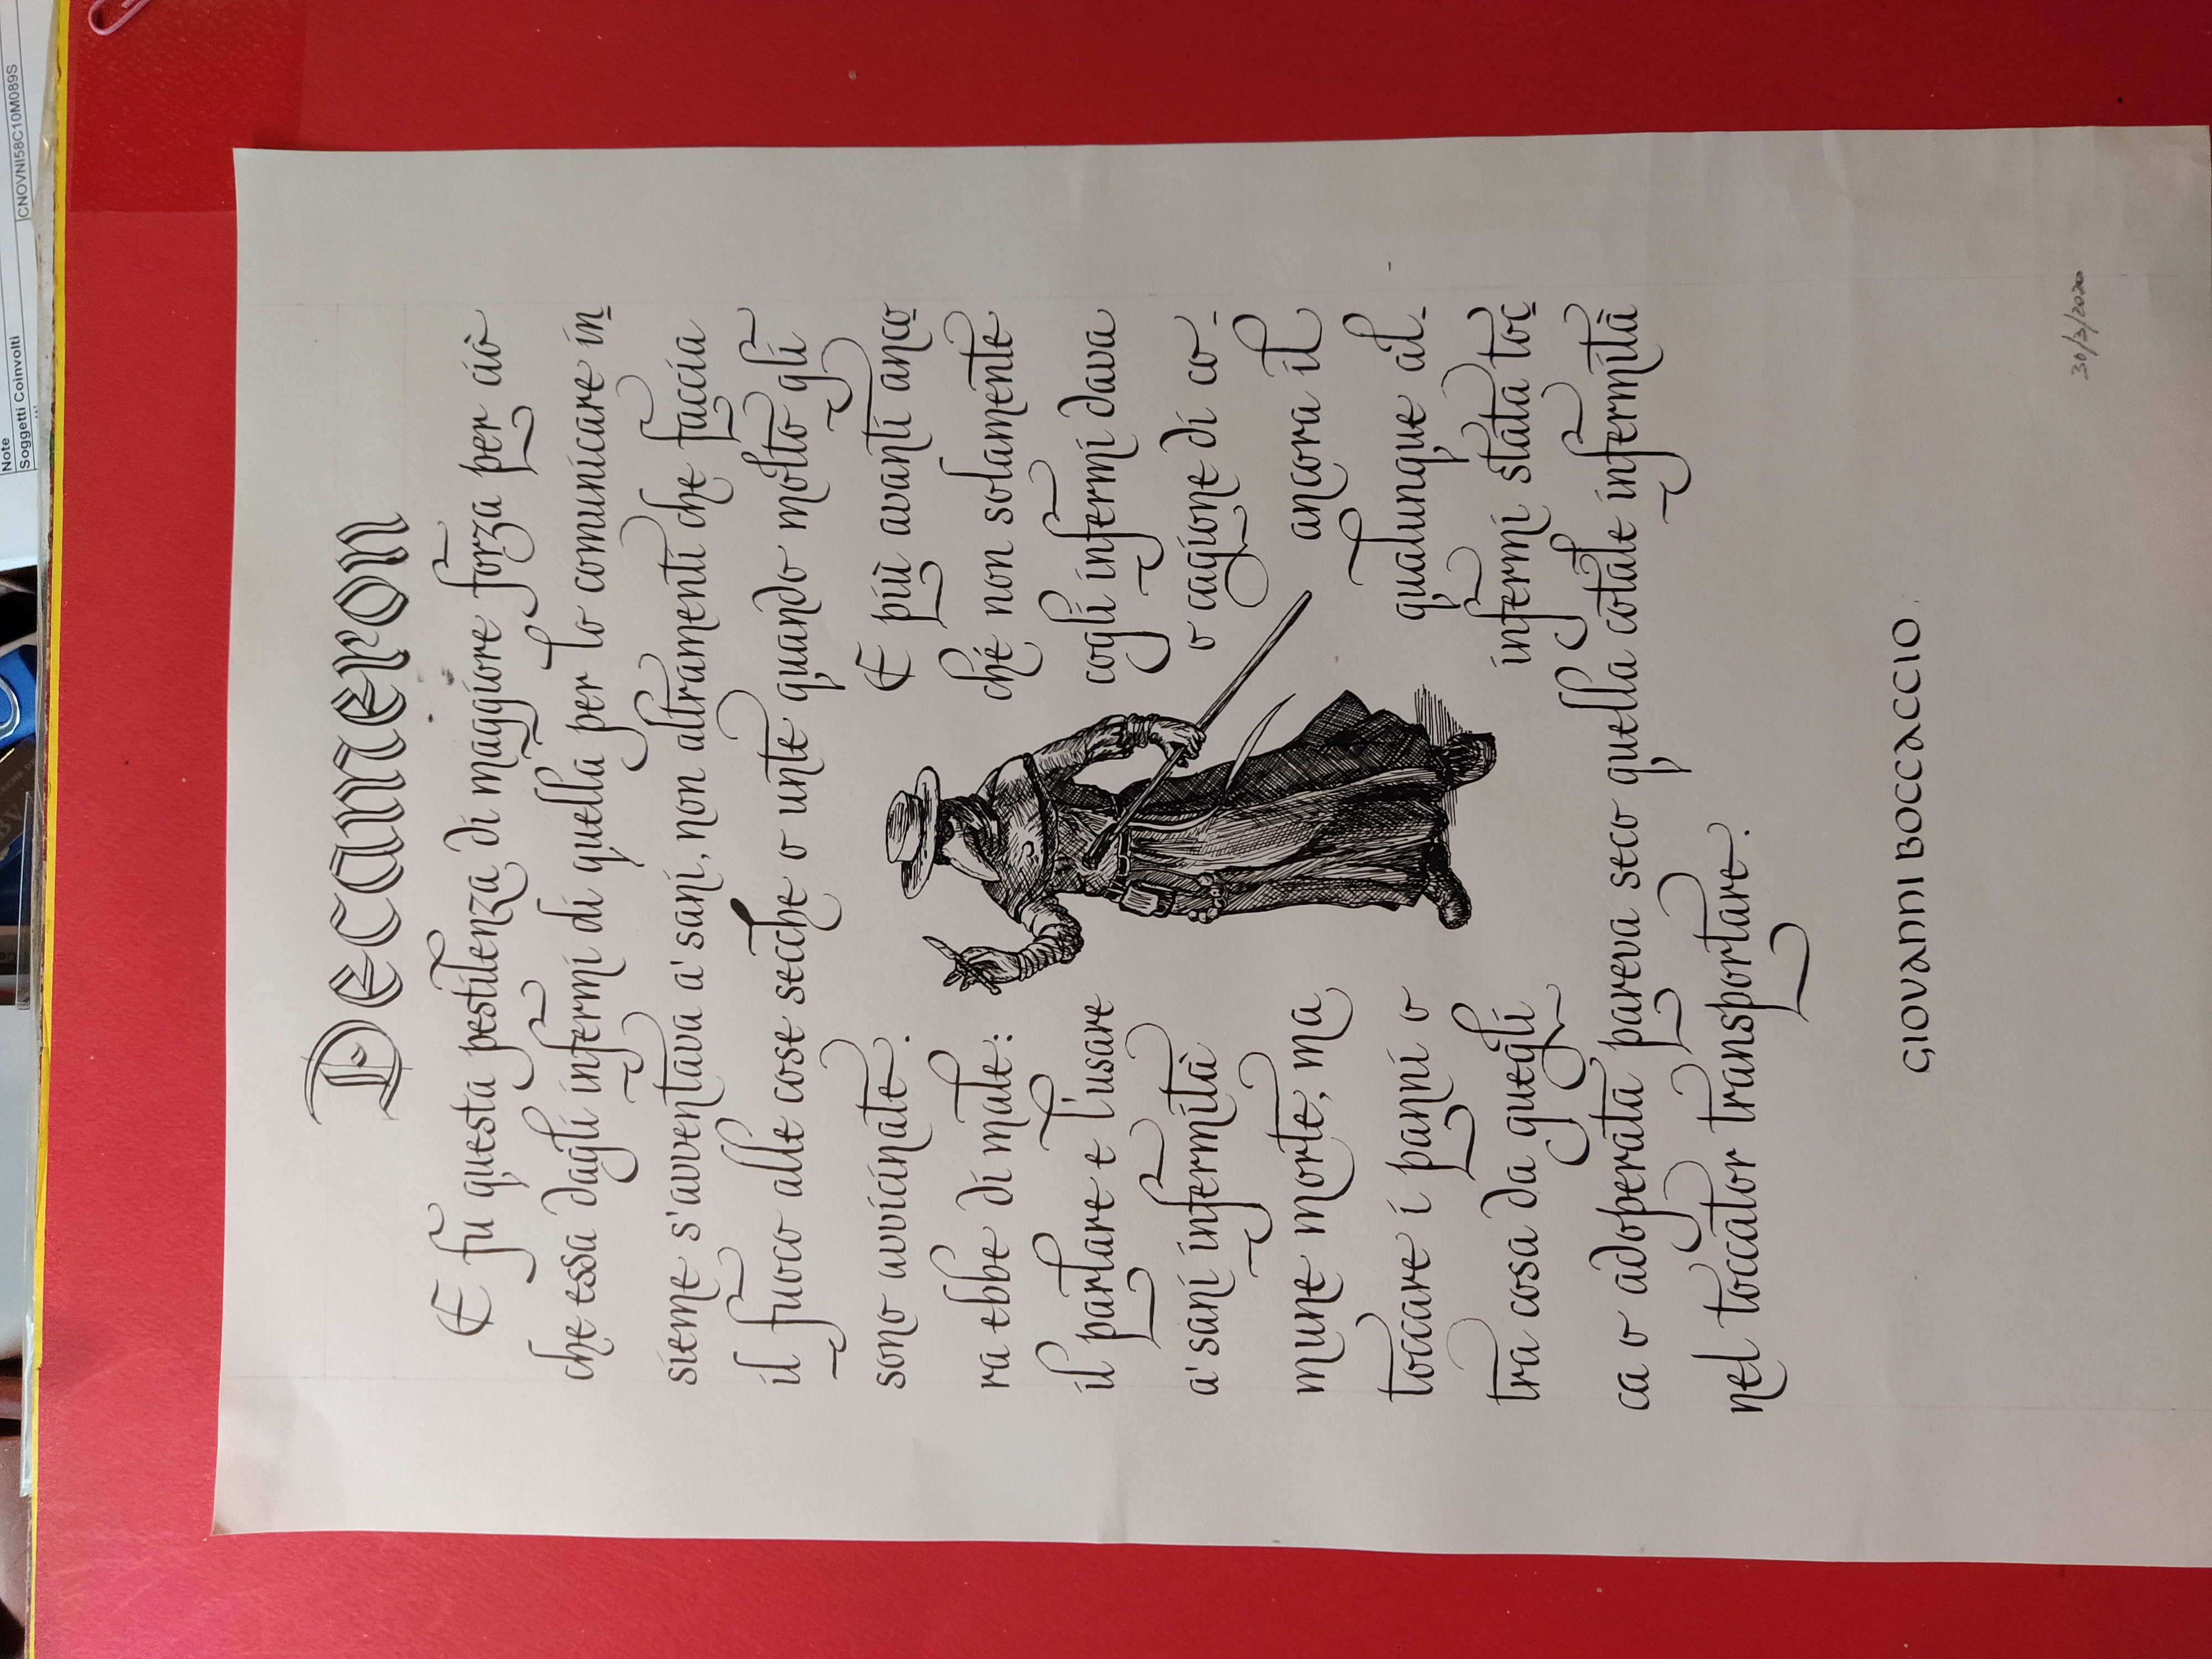 Note
Soggetti Coinvolti
CNOVNI58C10M089S
Decameron
E fu questa pestilenza di maggiore forza per ciò
che essa dagli infermi di quella per lo comunicare in
sieme s'avventava a' sani, non altramenti che faccia
il fuoco alle cose secche o unte quando molto gli
sono avvicinate. E più avanti anco
ra ebbe di male: ché non solamente
il parlare e l'usare cogli infermi dava
a' sani infermità o cagione di co-
mune morte, ma ancora il
toccare i panni o qualunque al-
tra cosa da quegli infermi stata toc
ca o adoperata pareva seco quella cotale infermità
nel toccator transportare.
GIOVANNI BOCCACCIO.
30/3/2020